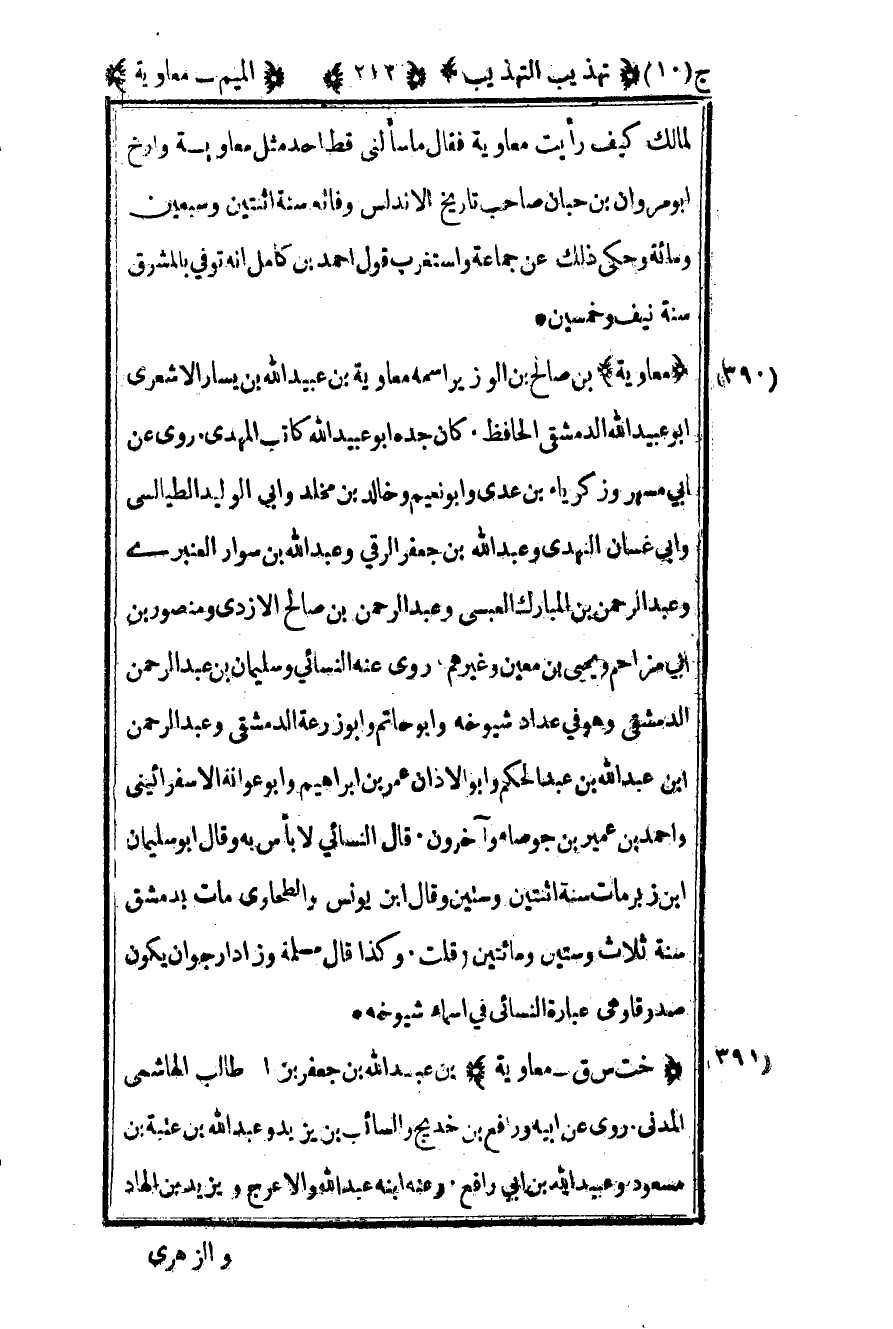 ج(١٠) ﴿ تهذيب التهذيب ﴾ ﴿ ٢١٣ ﴾ ﴿ الميم ـ معاوية ﴾
لمالك كيف رأيت معاوية فقال ما سألنى قط احد مثل معاوية وارخ
ابو مروان بن حبان صاحب تاريخ الاندلس وفاته سنة اثنتين وسبعين
ومائة وحكى ذلك عن جماعة واستغرب قول احمد بن كامل انه توفي بالمشرق
سنة نيف وخمسين•
(٣٩٠) ﴿معاوية﴾ بن صالح بن الوزير اسمه معاوية بن عبيدالله بن يسار الاشعرى
ابو عبيدالله الدمشقى الحافظ ٠ كان جده ابو عبيدالله كاتب المهدى ٠ روى عن
ابي مسهر وزكرياء بن عدى وابو نعيم وخالد بن مخلد وابي الوليد الطيالسى
وابي غسان النهدى وعبدالله بن جعفر الرقي وعبدالله بن سوار العنبرى
وعبدالرحمن بن المبارك العبسى وعبدالرحمن بن صالح الازدى ومنصور بن
ابي مزاحم ويحيى بن معين وغيرهم ٠ روى عنه النسائي وسليمان بن عبدالرحمن
الدمشقى وهو في عداد شيوخه وابو حاتم وابو زرعة الدمشقى وعبدالرحمن
ابن عبدالله بن عبدالحكم وابو الاذان عمر بن ابراهيم وابو عوانة الاسفرائينى
واحمد بن عمير بن جوصاء وآخرون ٠ قال النسائي لا بأس به وقال ابو سليمان
ابن زبر مات سنة اثنتين وستين وقال ابن يونس والطحاوى مات بدمشق
سنة ثلاث وستين ومائتين ٠ قلت ٠ وكذا قال مسلمة وزاد ارجو ان يكون
صدوقا وهى عبارة النسائى في اسماء شيوخه•
(٣٩١) ﴿ خت س ق ـ معاوية ﴾ بن عبدالله بن جعفر بن ا طالب الهاشمى
المدنى ٠ روى عن ابيه ورافع بن خديج والسائب بن يزيد وعبدالله بن عتبة بن
مسعود وعبيدالله بن ابي رافع ٠ وعنه ابنه عبدالله والاعرج ويزيد بن الهاد
والزهرى